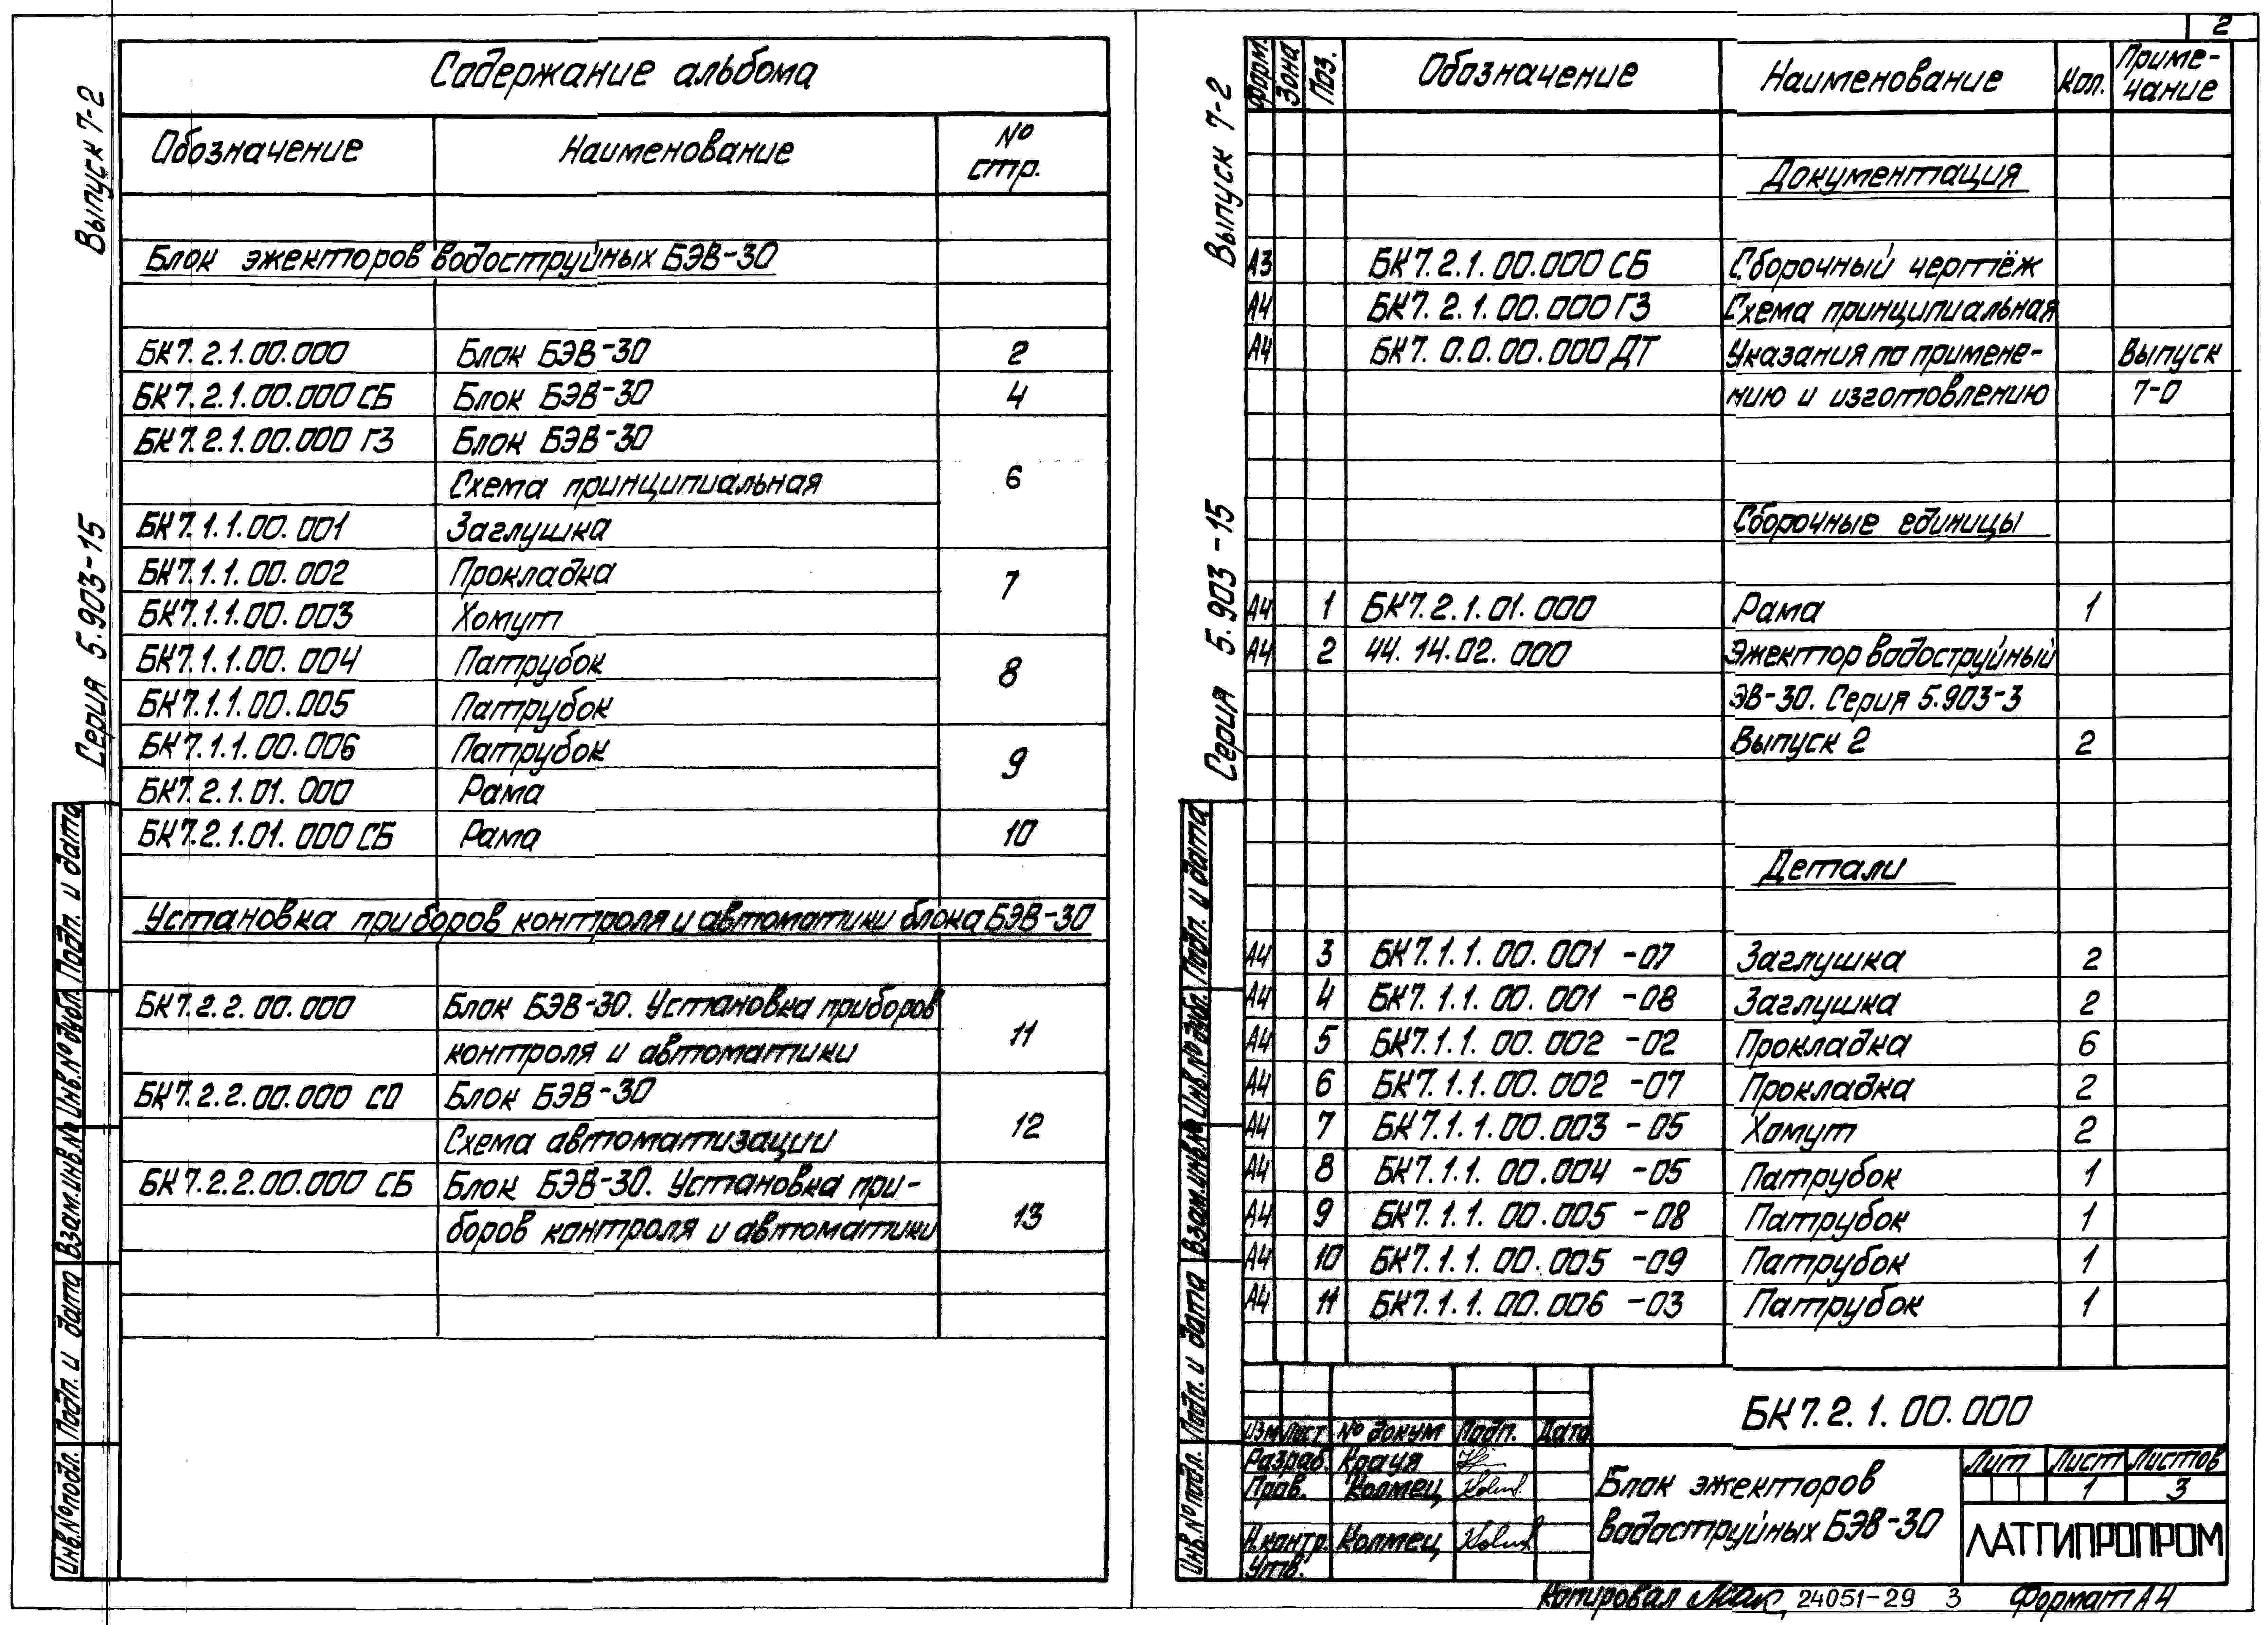 Содержание альбома
Обозначение Наименование № стр.
Блок эжекторов водоструйных БЭВ-30
БК7.2.1.00.000 Блок БЭВ-30 2
БК7.2.1.00.000 СБ Блок БЭВ-30 4
БК7.2.1.00.000 ГЗ Блок БЭВ-30
Схема принципиальная 6
БК7.1.1.00.001 Заглушка
БК7.1.1.00.002 Прокладка 7
БК7.1.1.00.003 Хомут
БК7.1.1.00.004 Патрубок 8
БК7.1.1.00.005 Патрубок
БК7.1.1.00.006 Патрубок 9
БК7.2.1.01.000 Рама
БК7.2.1.01.000 СБ Рама 10
Установка приборов контроля и автоматики блока БЭВ-30
БК7.2.2.00.000 Блок БЭВ-30. Установка приборов 11
контроля и автоматики
БК7.2.2.00.000 СО Блок БЭВ-30 12
Схема автоматизации
БК7.2.2.00.000 СБ Блок БЭВ-30. Установка при- 13
боров контроля и автоматики
Выпуск 7-2
Серия 5.903-15
Подп. и дата
Инв.№ дубл.
Взам.инв.№
Подп. и дата
Инв.№подл.
2
Форм. Зона Поз. Обозначение Наименование Кол. Приме-
чание
Документация
А3 БК7.2.1.00.000 СБ Сборочный чертёж
А4 БК7.2.1.00.000 ГЗ Схема принципиальная
А4 БК7.0.0.00.000 ДТ Указания по примене- Выпуск
нию и изготовлению 7-0
Сборочные единицы
А4 1 БК7.2.1.01.000 Рама 1
А4 2 44.14.02.000 Эжектор водоструйный
ЭВ-30. Серия 5.903-3
Выпуск 2 2
Детали
А4 3 БК7.1.1.00.001 -07 Заглушка 2
А4 4 БК7.1.1.00.001 -08 Заглушка 2
А4 5 БК7.1.1.00.002 -02 Прокладка 6
А4 6 БК7.1.1.00.002 -07 Прокладка 2
А4 7 БК7.1.1.00.003 -05 Хомут 2
А4 8 БК7.1.1.00.004 -05 Патрубок 1
А4 9 БК7.1.1.00.005 -08 Патрубок 1
А4 10 БК7.1.1.00.005 -09 Патрубок 1
А4 11 БК7.1.1.00.006 -03 Патрубок 1
Выпуск 7-2
Серия 5.903-15
Подп. и дата
Инв.№ дубл.
Взам.инв.№
Подп. и дата
Инв.№подл.
БК7.2.1.00.000
Изм Лист № докум Подп. Дата
Разраб. Крауя
Пров. Колмец
Н.контр. Колмец
Утв.
Блок эжекторов
водоструйных БЭВ-30
Лит Лист Листов
1 3
ЛАТГИПРОПРОМ
Копировал 24051-29 3 Формат А4